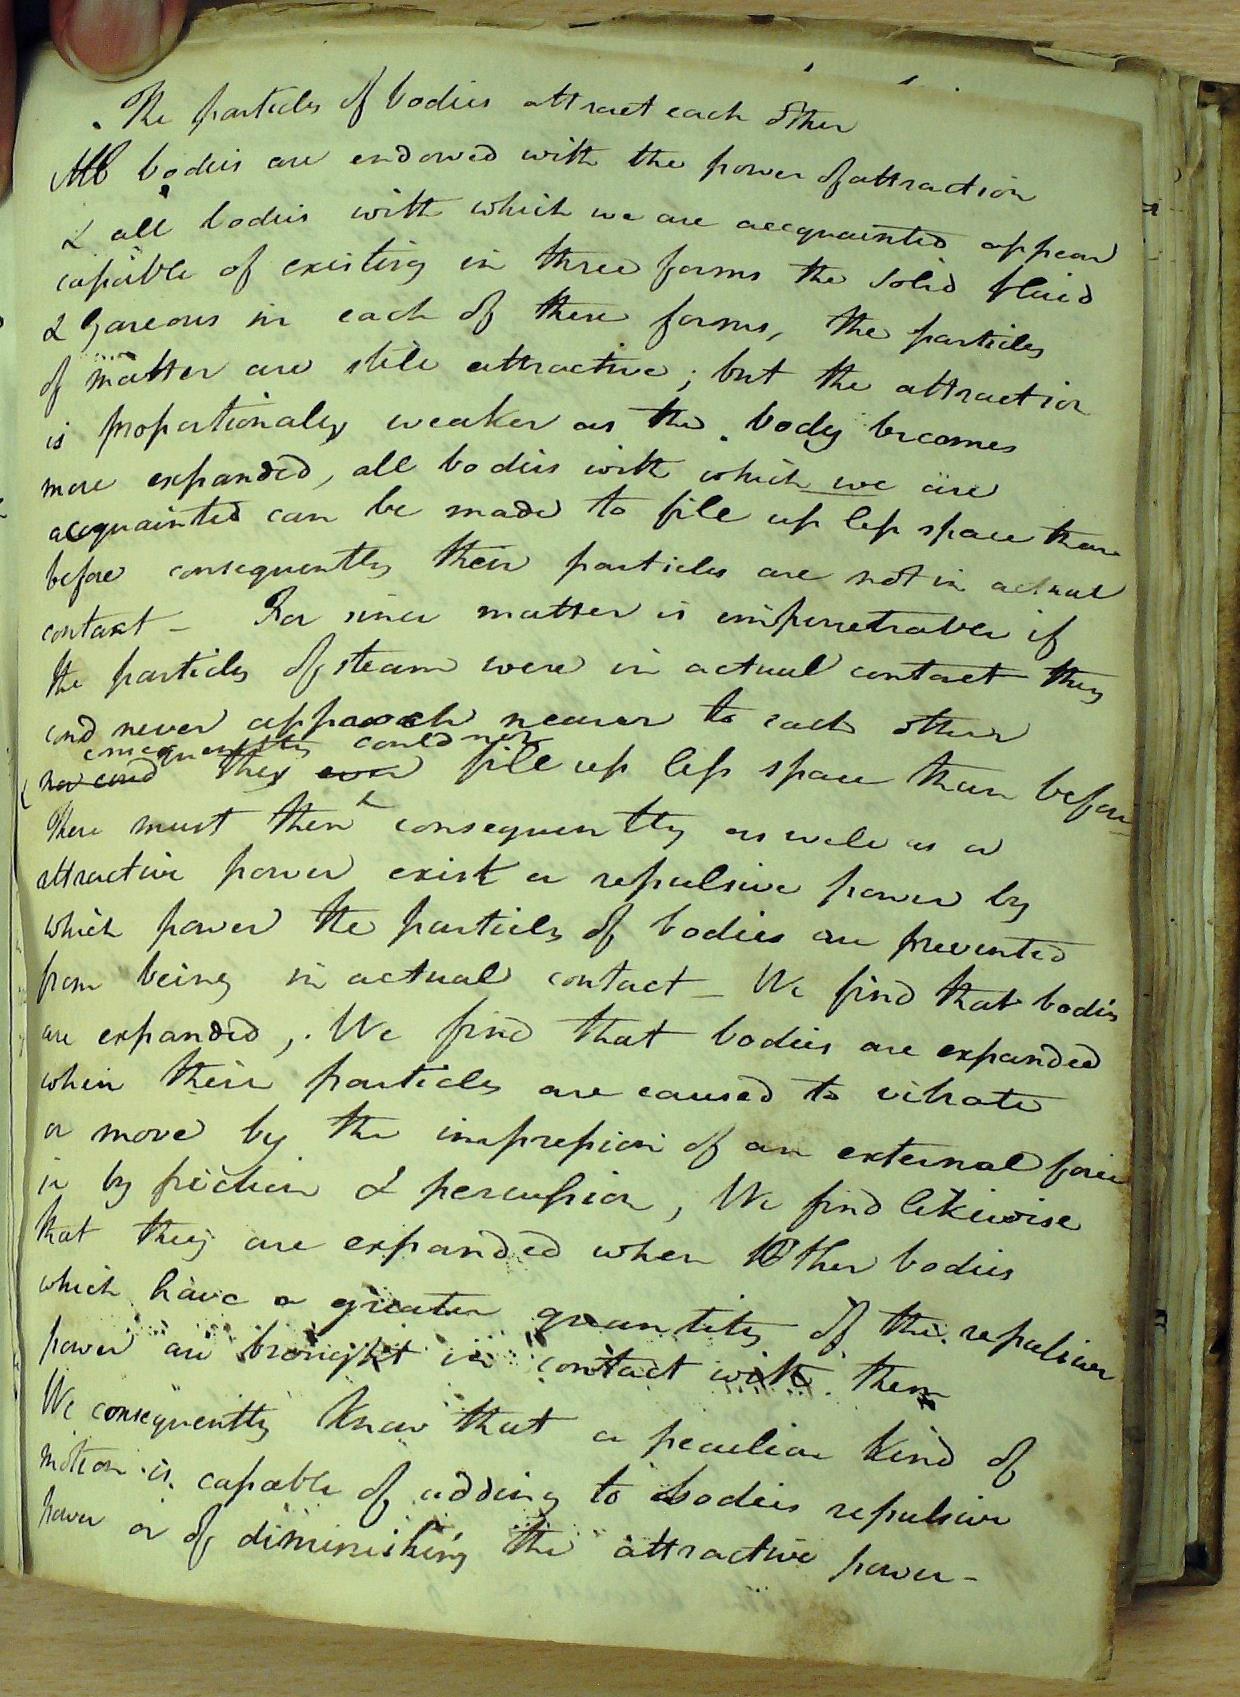 The particles of bodies attract each other
All bodies are endowed with the power of attraction
& all bodies with which we are acquainted appear
capable of existing in three forms the solid fluid
& Gaseous in each of these forms, the particles
of matter are still attractive; but the attraction
is proportionaly weaker as the body becomes
more expanded, all bodies with which we are
acquainted can be made to fill up less space than
before consequently their particles are not in actual
contact – For since matter is impenetrable if
the particles of steam were in actual contact they
coud never approach nearer to each other
consequently could not
& nor coud they ever fill up less space than before
There must then consequently as well as a
attractive power exist a repulsive power by
which power the particles of bodies are prevented
from being in actual contact – We find that bodies
are expanded, We find that bodies are expanded
when their particles are caused to vibrate
or move by the impression of an external force
ie by friction & percussion, We find likewise
that they are expanded when Other bodies
which have a greater quantity of the repulsive
power are brought in contact with them
We consequently know that a peculiar kind of
motion is capable of adding to bodies repulsive
power or of diminishing the attractive power –